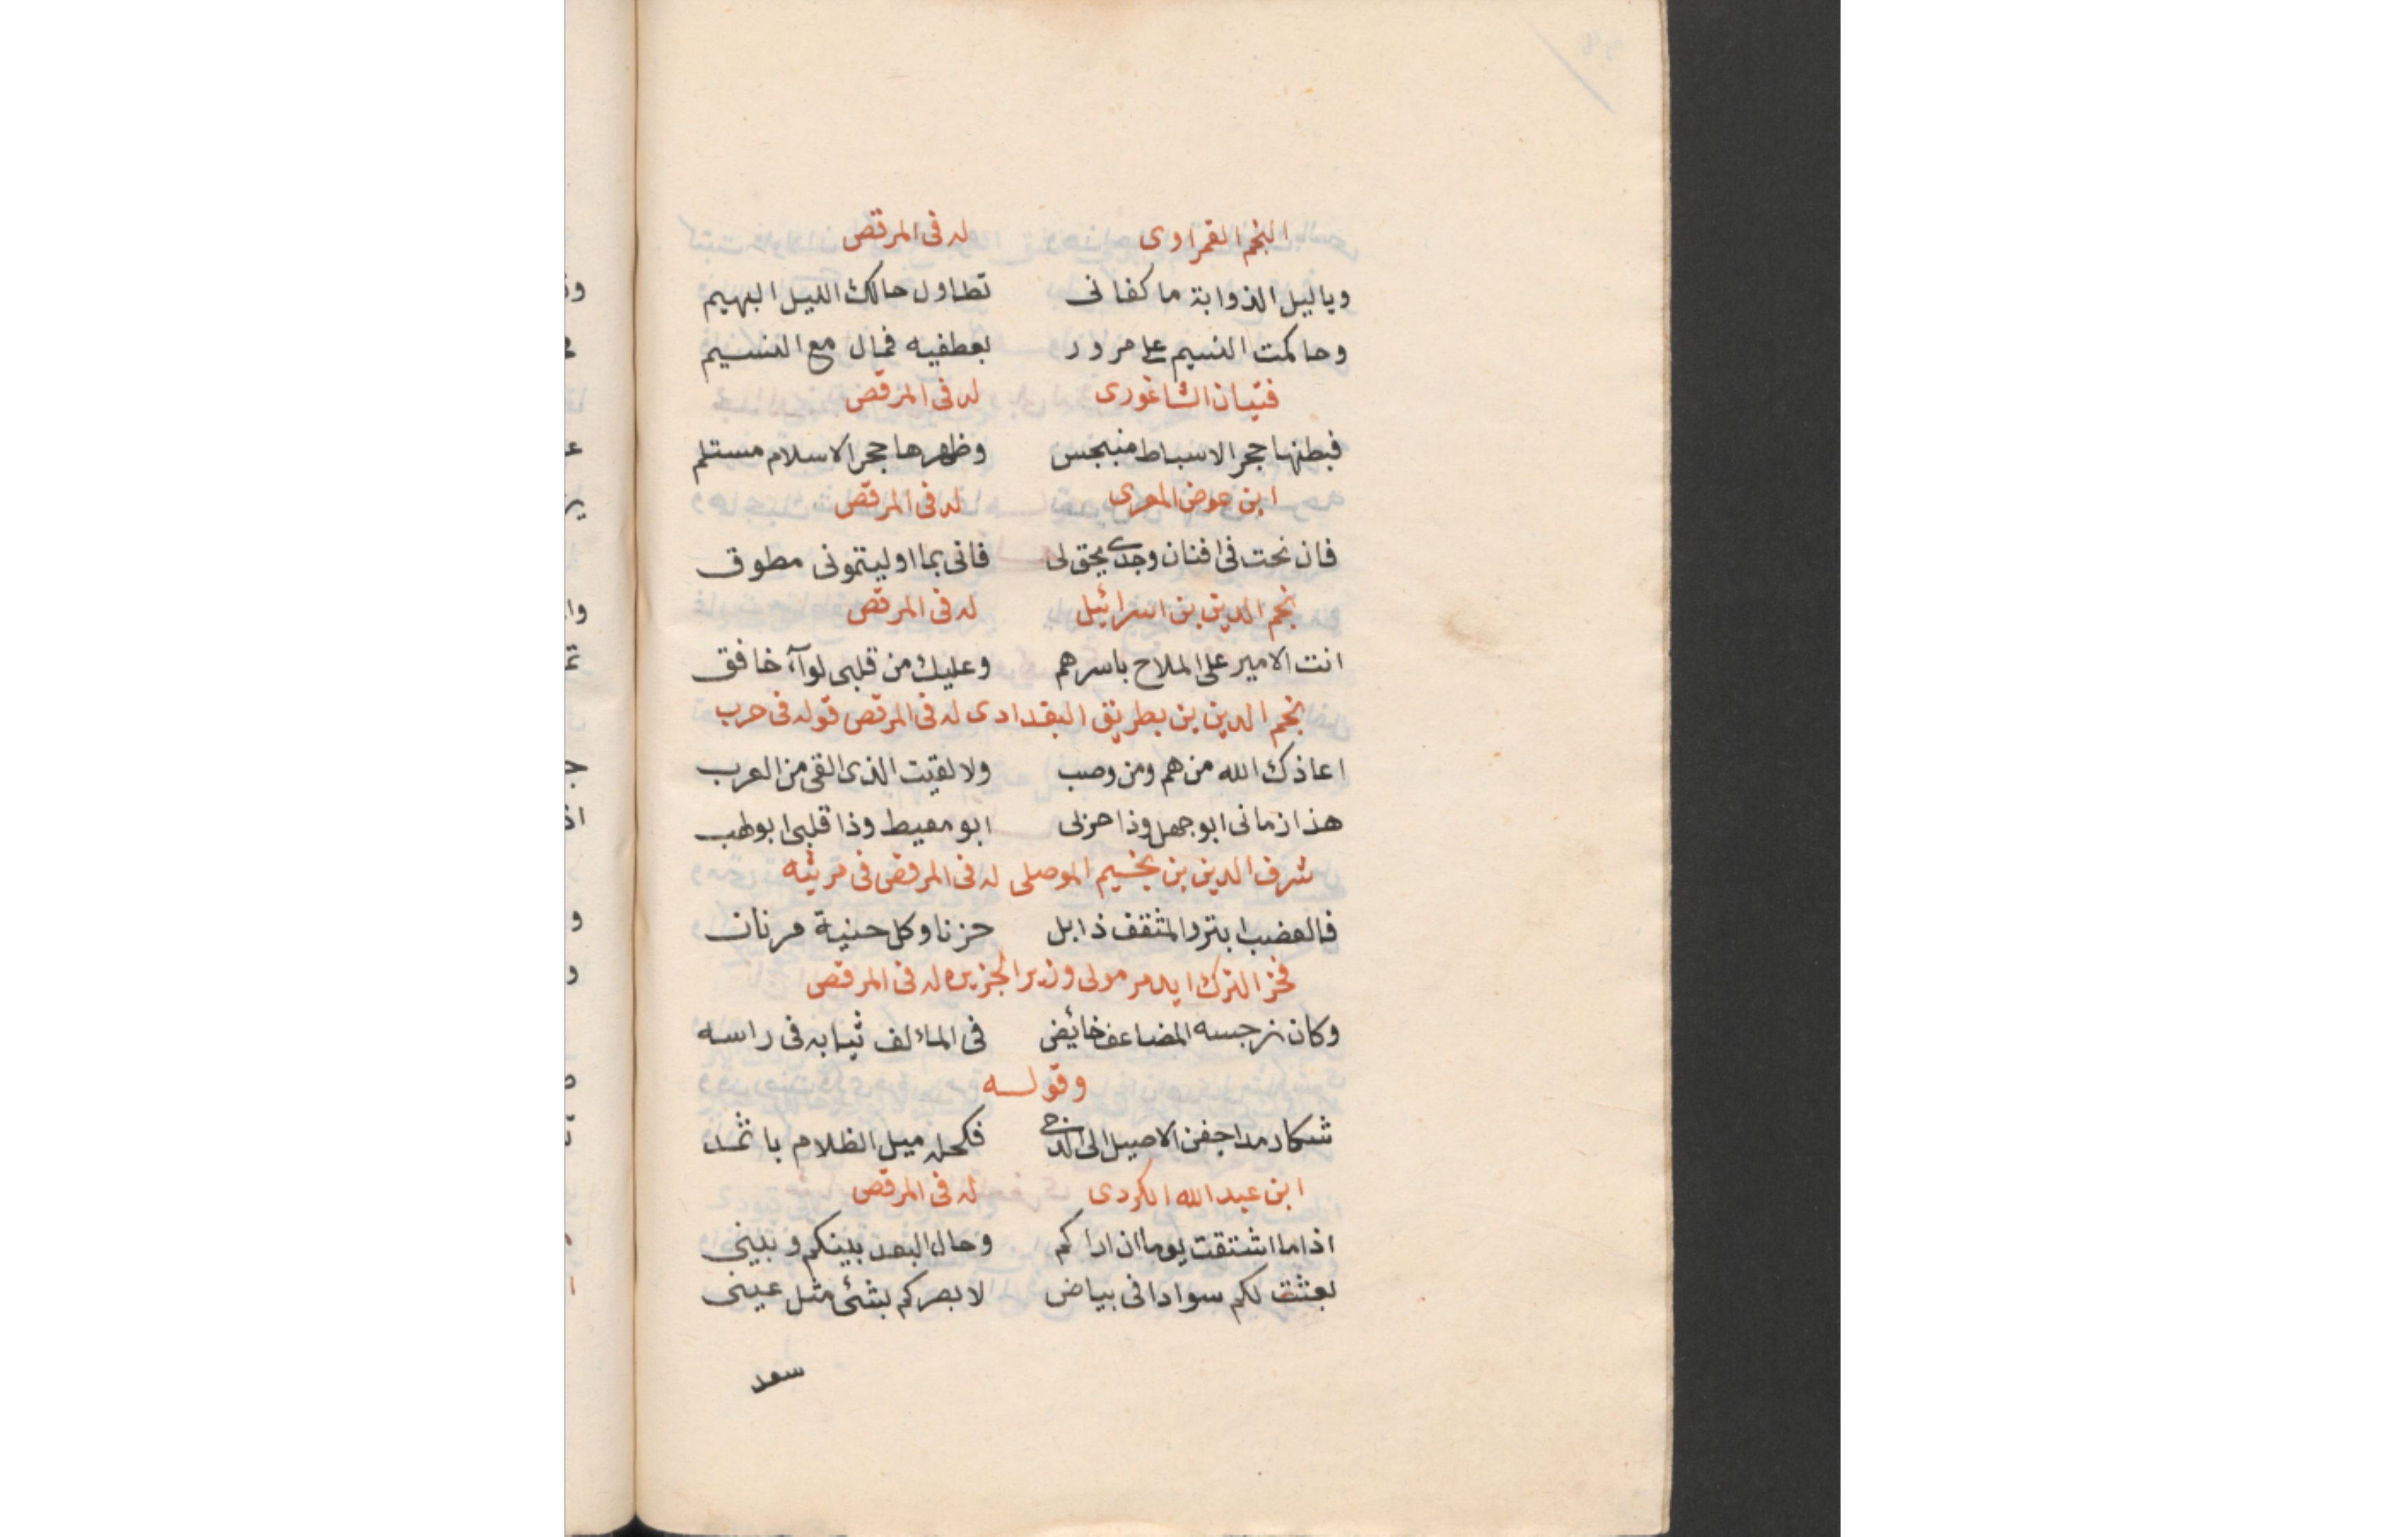 النجم القمراوى له فى المرقص
وياليل الذوابة ما كفانى تطاول حالك الليل البهيم
وحاكمت النسيم على مرور بعطفيه فمال مع النسيم
فتيان الشاغورى له فى المرقص
فبطنها حجر الاسباط منبجس وظهرها حجر الاسلام مستلم
ابن عوض المعرى له فى المرقص
فان نحت فى افنان وجدى يحق لى فانى بما اوليتمونى مطوق
نجم الدين بن اسرائيل له فى المرقص
انت الامير على الملاح باسرهم وعليك من قلبى لوآء خافق
نجم الدين بن بطريق البغدادى له فى المرقص قوله فى حرب
اعاذك الله من هم ومن وصب ولا لقيت الذى القى من العرب
هذا زمانى ابو جهل وذا حزلى ابو معيط وذا قلبى ابو لهب
شرف الدين بن الموصلى له فى المرقص فى مرثيه
فالعضب ابتر والمثقف ذابل حزنا وكل حنية مرنان
فخر الترك ايدمر مولى وزير الجزيره له فى المرقص
وكان نرجسه المضاعف خائض فى الماء لف ثيابه فى راسه
وقوله
شكا رمدا جفن الاصيل الى الدجى فكحله ميل الظلام باثمد
ابن عبد الله الكردى له فى المرقص
اذا ما اشتقت يوما ان اراكم وحال البعد بينكم وبينى
بعثت لكم سوادا فى بياض لابصركم بشئ مثل عينى
سعد